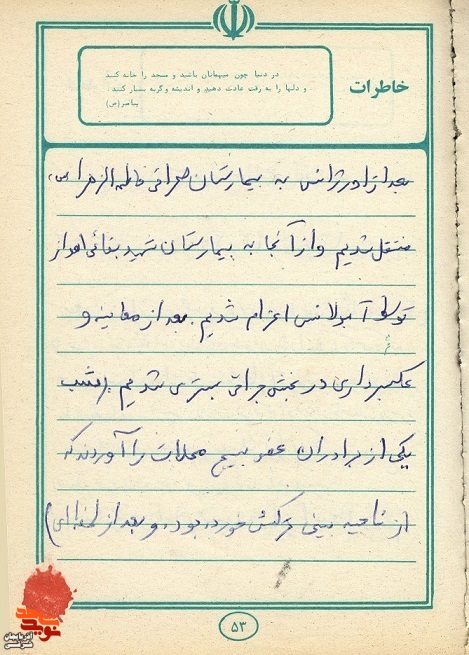 خاطرات
در دنیا چون میهمانان باشید و مسجد را خانه کنید
و دلها را به رقت عادت دهید و اندیشه و گریه بسیار کنید.
پیامبر(ص)
بعد از اورژانس به بیمارستان صحرائی فاطمه الزهرا (س)
منتقل شدیم و از آنجا به بیمارستان شهید بقائی اهواز
توسط آمبولانس اعزام شدیم. بعد از معاینه و
عکسبرداری در بخش جراحی بستری شدیم
یکی از برادران عضو بسیج محلات را آوردند که
از ناحیه بینی ترکش خورده بود و بعد از لحظه‌ای)
۵۳
نوید
آذربایجان